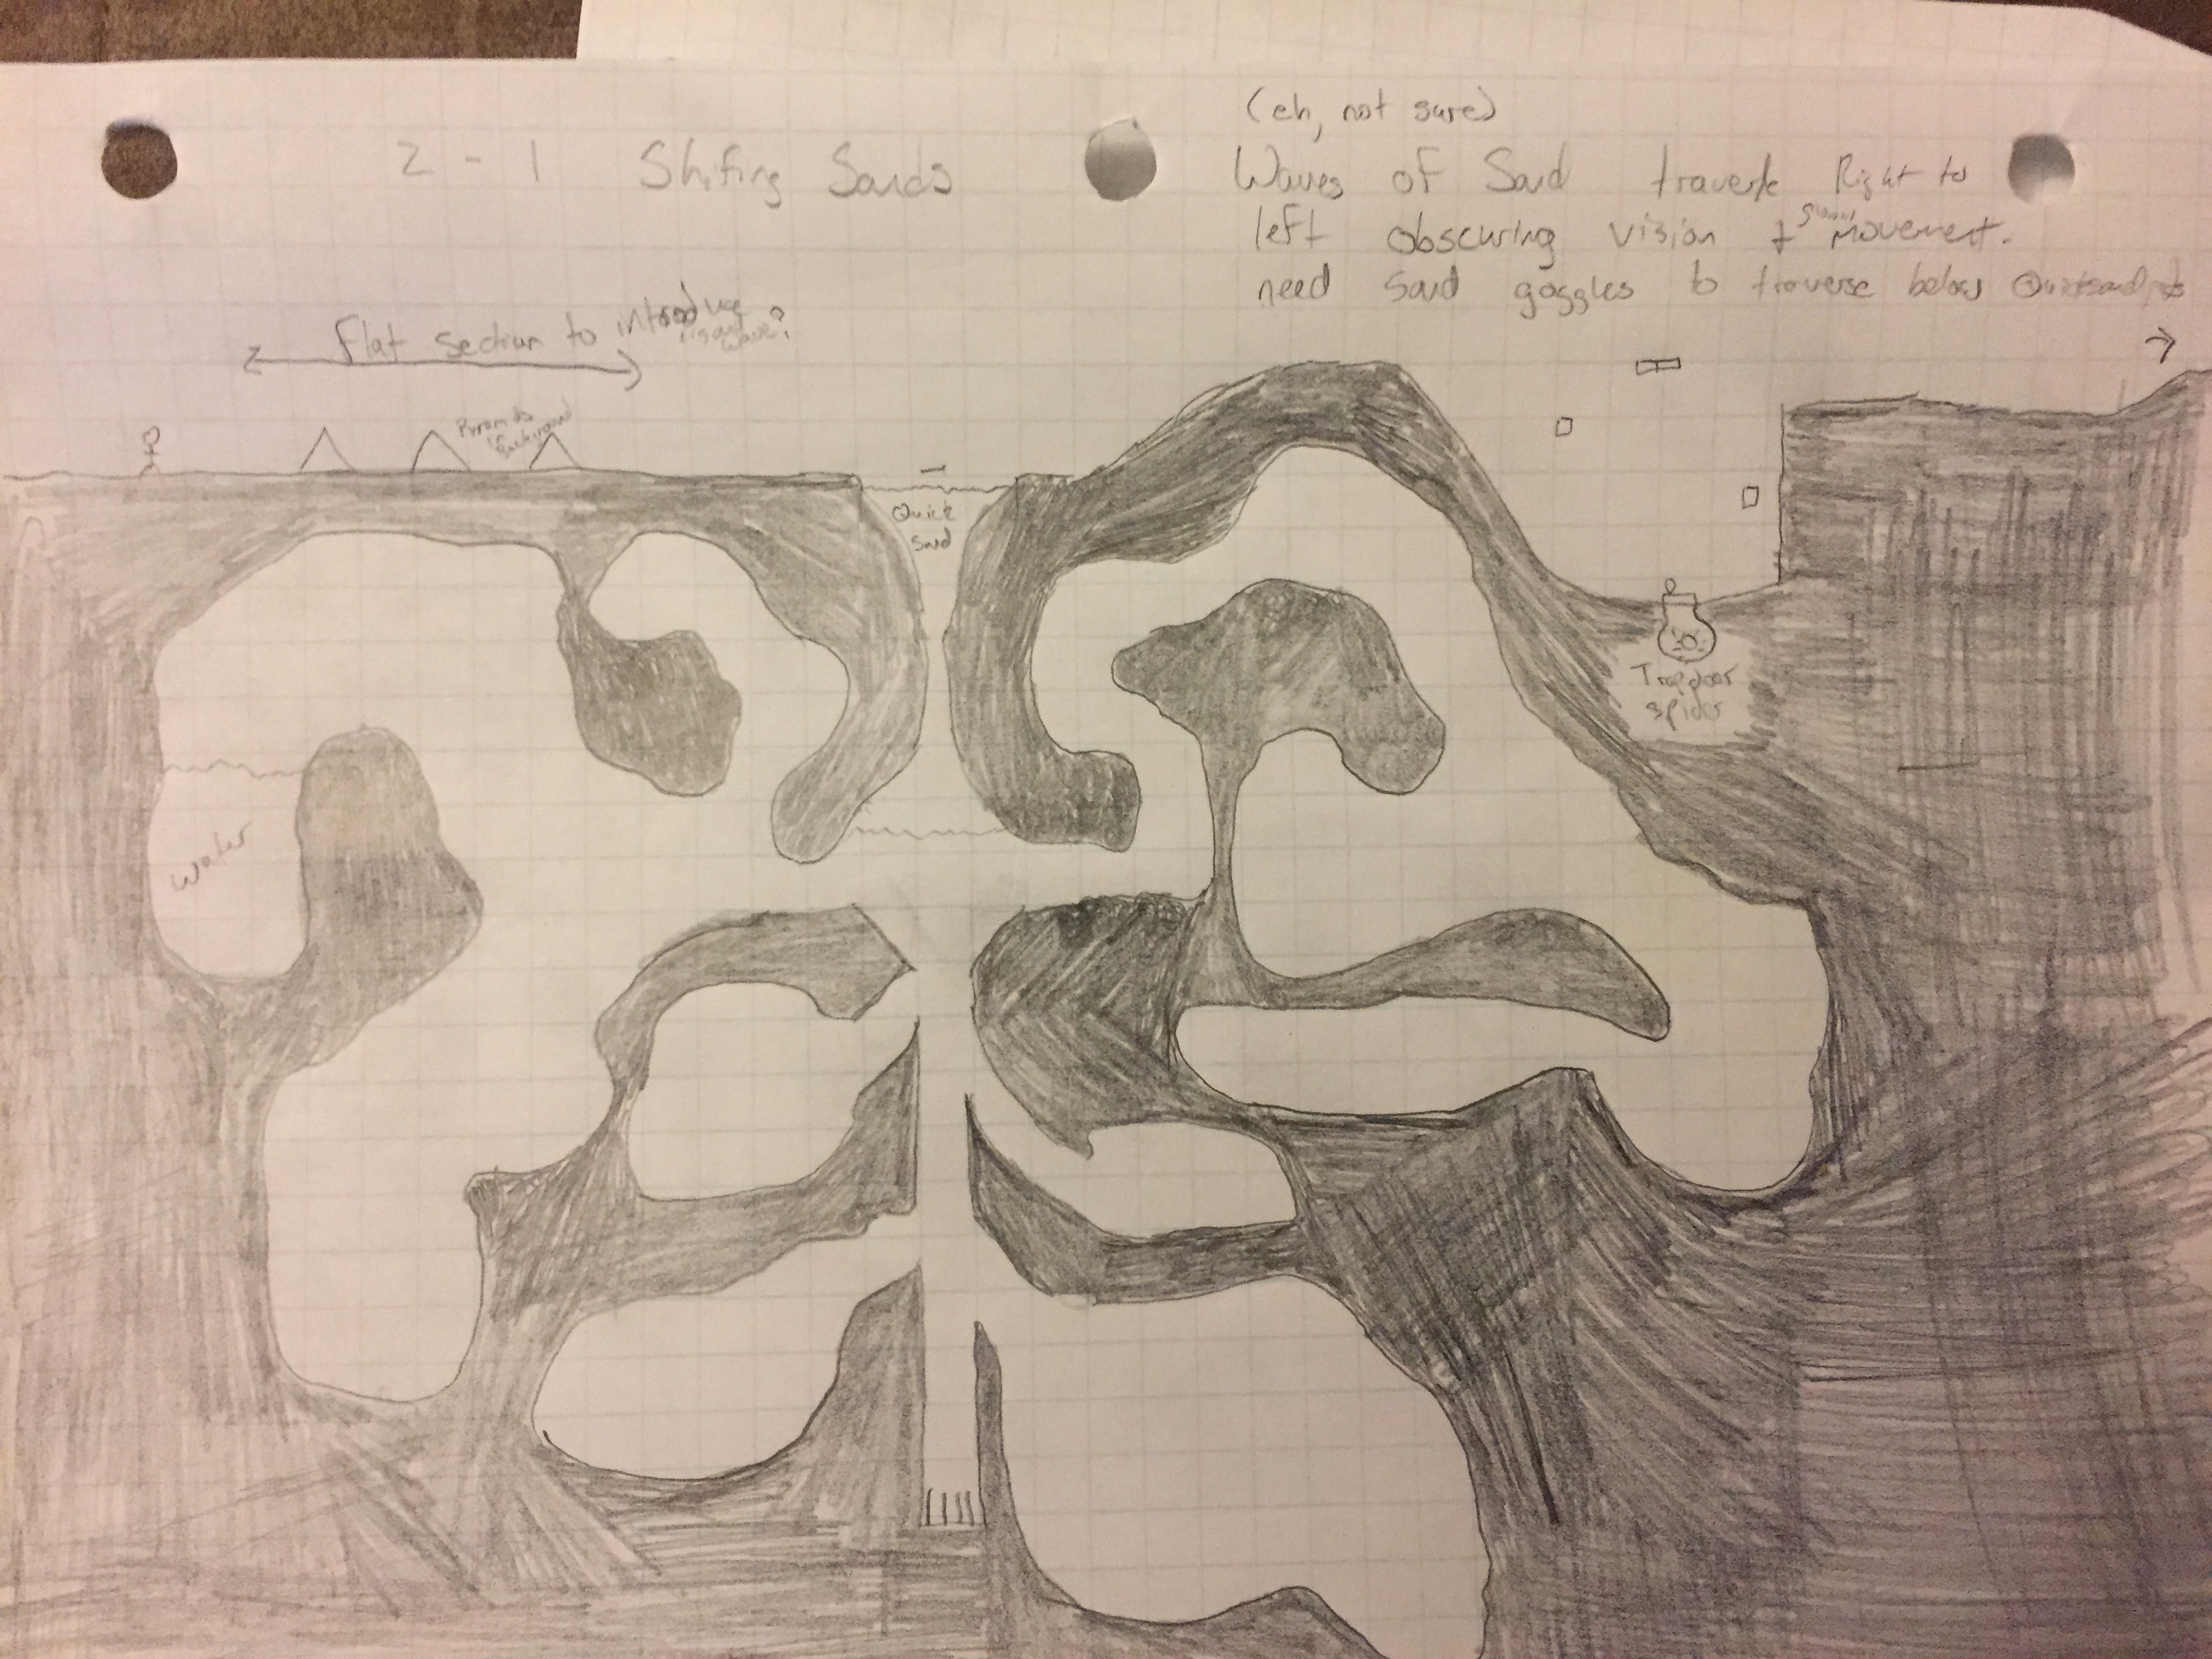 2-1 Shifting Sands
(eh, not sure)
Waves of Sand traverse Right to
left obscuring vision + movement.
need sand goggles to traverse below Quicksand pits
flat section to introduce
Pyramids
Background
Quick
Sand
Water
Trapdoor
spider